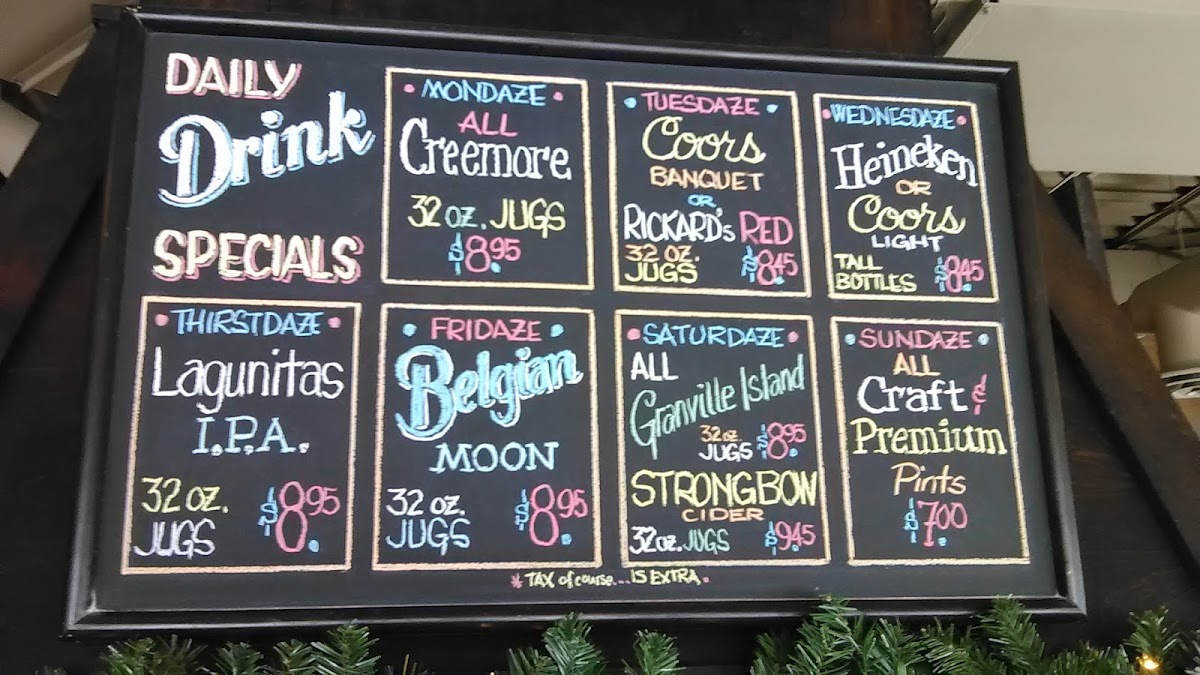 DAILY
Drink
SPECIALS
MONDAZE
ALL
Creemore
32 oz. JUGS
$8.95
TUESDAZE
Coors
BANQUET
OR
RICKARD's RED
32 oz.
JUGS
$8.45
WEDNESDAZE
Heineken
OR
Coors
LIGHT
TALL
BOTTLES
$8.45
THIRSTDAZE
Lagunitas
I.P.A.
32 oz.
JUGS
$8.95
FRIDAZE
Belgian
MOON
32 oz.
JUGS
$8.95
SATURDAZE
ALL
Granville Island
32 oz.
JUGS
$8.95
STRONGBOW
CIDER
32 oz. JUGS $9.45
SUNDAZE
ALL
Craft &
Premium
Pints
$7.00
* TAX of course... IS EXTRA.